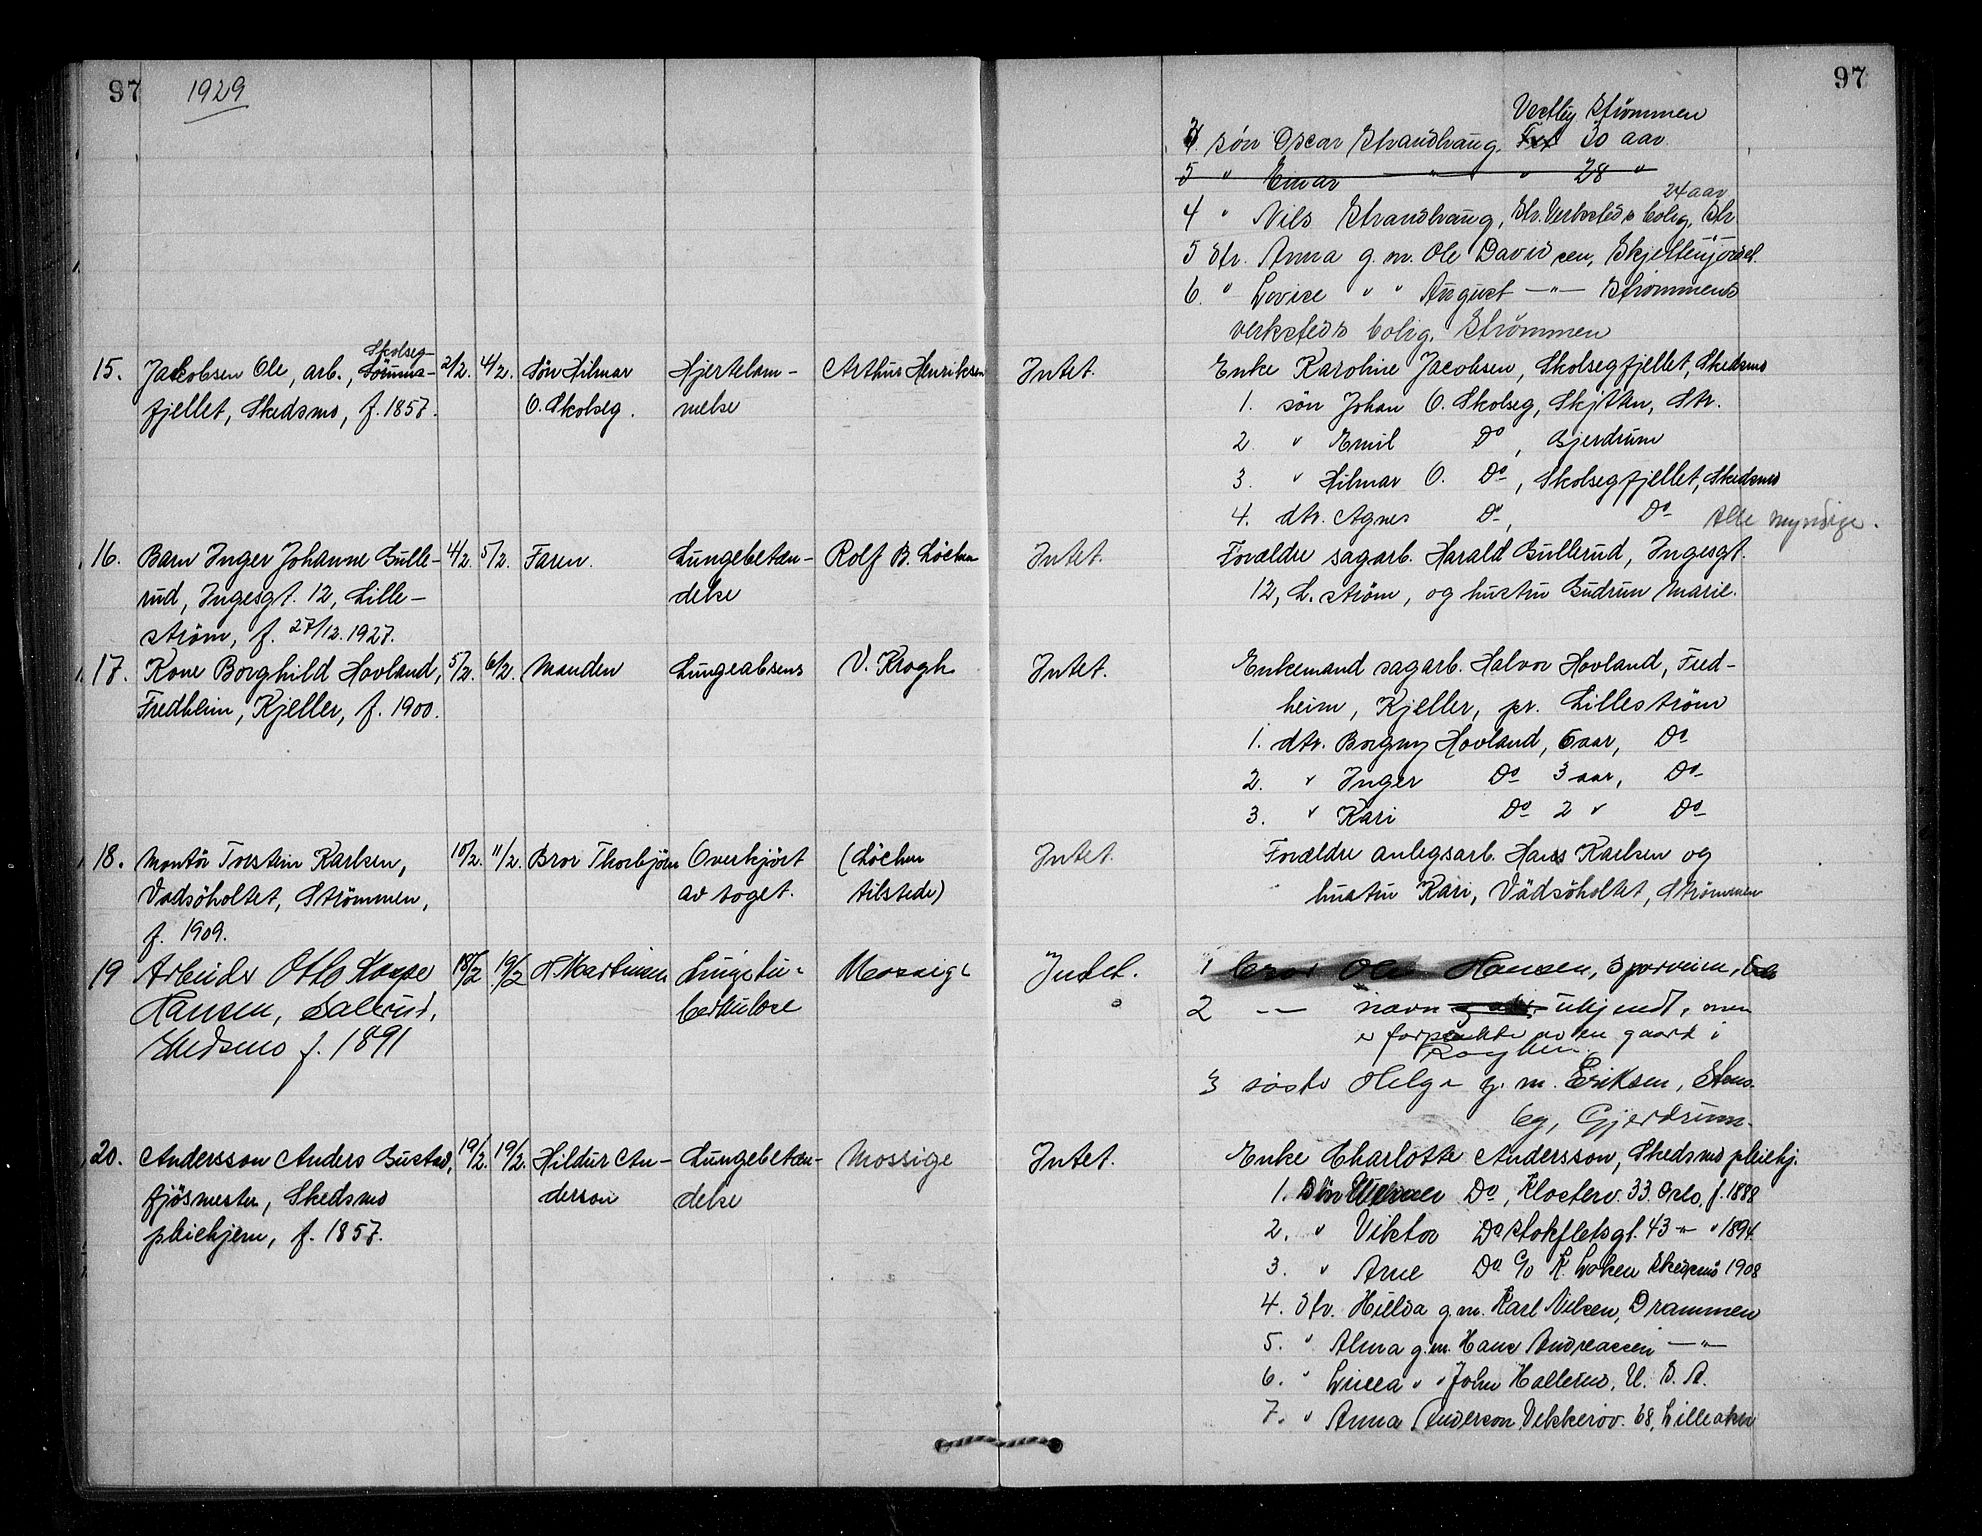 97
1929
97
Vestby Strømmen
3. søn Oscar Strandhaug, 30 aar.
5 " Einar " " 28 "
24 aar
4 " Nils Strandhaug, Str. Verksteds bolig, Str.
5 dtr. Anna g. m. Ole Davidsen, Skjettenjordet.
6. " Lovise " " August —"— Strømmens
verksteds bolig. Strømmen
15. Jacobsen Ole, arb., Skolseg-
fjellet, Skedsmo, f. 1857.
2/2. 4/2. Søn Hilmar
O. Skolseg.
Hjertelam-
melse
Arthur Henriksen
Intet.
Enke Karoline Jacobsen, Skolsegfjellet, Skedsmo
1. søn Johan O. Skolseg, Skjtten, Str.
2. " Emil Do, Gjerdrum
3. " Hilmar O. Do, Skolsegfjellet, Skedsmo
4. dtr. Agnes Do, Do Alle myndige.
16. Barn Inger Johanne Gulle-
rud, Ingesgt. 12, Lille-
strøm, f. 27/12. 1927.
4/2. 5/2. Faren.
Lungebetæn-
delse
Rolf B. Løchen
Intet.
Forældre sagarb. Harald Gullerud, Ingesgt.
12, L. strøm, og hustru Gudrun Marie.
17. Kone Borghild Hovland,
Fredheim, Kjeller, f. 1900.
5/2. 6/2. Manden
Lungeabsens
V. Krogh
Intet.
Enkemand sagarb. Halvor Hovland, Fred-
heim, Kjeller, pr. Lillestrøm
1. dtr. Borgny Hovland, 6 aar, Do
2. " Inger Do 3 aar, Do
3. " Kari Do 2 " Do
18. Montør Torstein Karlsen,
Vadsöholtet, Strømmen,
f. 1909.
10/2. 11/2. Bror Thorbjørn
Overkjørt
av toget.
(Løchen
tilstede)
Intet.
Forældre anlegsarb. Hans Karlsen og
hustru Kari, Vadsöholtet, Strømmen
19 Arbeider Otto Kaspe
Hansen, Sallerud,
Skedsmo f. 1891
18/2 19/2 H Martinsen
Lungetu-
berkulose
Mossige
Intet.
1 bror Ole Hansen, Sporveien,
2 —— navn ukjendt, men
er forpakter av en gaard i
Røyken
3 søster Helga g. m. Eriksen, Stens-
by, Gjerdrum.
20. Andersson Anders Gustav,
fjøsmester, Skedsmo
pleiehjem, f. 1857.
19/2. 19/2. Hildur An-
derson
Lungebetæn-
delse
Mossige
Intet.
Enke Charlotte Andersson, Skedsmo pleiehj.
1. Søn Do, Klosterv. 33. Oslo, f. 1888
2. " Viktor Do Stokfletsgt. 43 —"— " 1894
3. " Arne Do c/o K. Loken Skedsmo 1908
4. dtr. Hilda g. m. Karl Nilsen, Drammen
5. " Alma g. m. Hans Andreassen —"—
6. " " " John Hallerud, U. S. A.
7. " Anna Anderson, Vekkerov. 68, Lilleaker